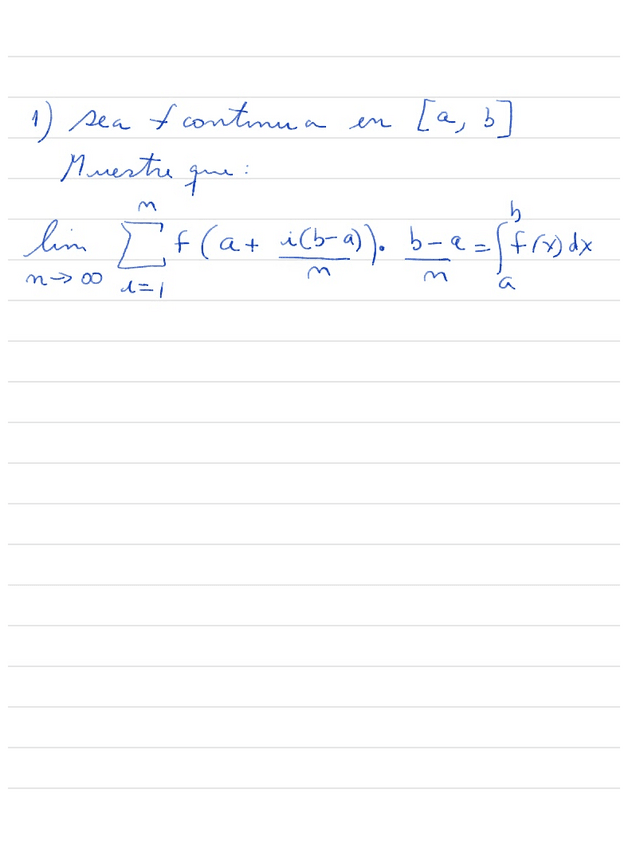 1) sea f continua en [a, b]
Muestre que:
lim n→∞ n ∑ i=1 f(a + i(b-a)/n) · b-a/n = ∫ a b f(x) dx